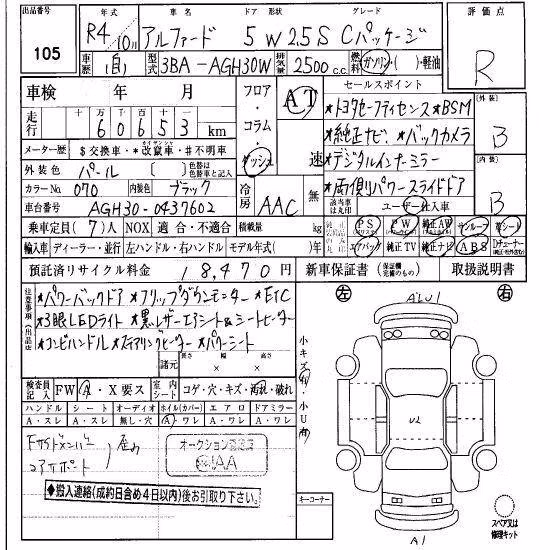 出品番号 年式 車名 ドア 形状 グレード 評価点
105 R4/10月 アルファード 5W 2.5S Cパッケージ R
車歴 自 型式 3BA-AGH30W 排気量 2500c.c. 燃料 ガソリン・( )・軽油
車検 年 月 フロア・コラム・ダッシュ AT 速 セールスポイント
走行 十万千百十
6 0 6 5 3 km
★トヨタセーフティセンス★BSM 外装 B
★純正ナビ.★バックカメラ
メーター歴 $交換車・*改竄車・#不明車 ★デジタルインナーミラー 内装 B
外装色 パール [ ] 色替は色替車と記入 ★両側パワースライドドア
カラーNo 070 内装色 ブラック 冷房 AAC 無 該当車は丸印 ユーザー仕入車
車台番号 AGH30-0437602
乗車定員 (7)人 NOX 適合・不適合 積載量 kg PS PW 純正AW サンルーフ 革シート
輸入車 ディーラー・並行 左ハンドル・右ハンドル モデル年式( )年 エアバック 純正TV 純正ナビ ABS
預託済リサイクル料金 18,470円 新車保証書 (保証欄完備のもの) 取扱説明書
注意事項(出品店)
★パワーバックドア★フリップダウンモニター★ETC
★3眼LEDライト★黒レザーエアシート&シートヒーター
★コンビハンドル★ステアリングヒーター★パワーシート
諸元 長さ × 幅 × 高さ
左 右
AUU1
検査員記入 FW Ⓐ・X要ス 室内シート コゲ・穴・キズ・汚れ・破れ
ハンドル シート オーディオ ホイル(カバー) エアロ ドアミラー
A・スレ A・スレ 無し・穴 A・ワレ A・ワレ A・ワレ
Fサイドメンバー
コアサポート 歪み
オークション
JAA
◆搬入連絡(成約日含め4日以内)後お引取り下さい。
キーコーナー
小キズ 小U
UL
A1
スペア又は修理キット